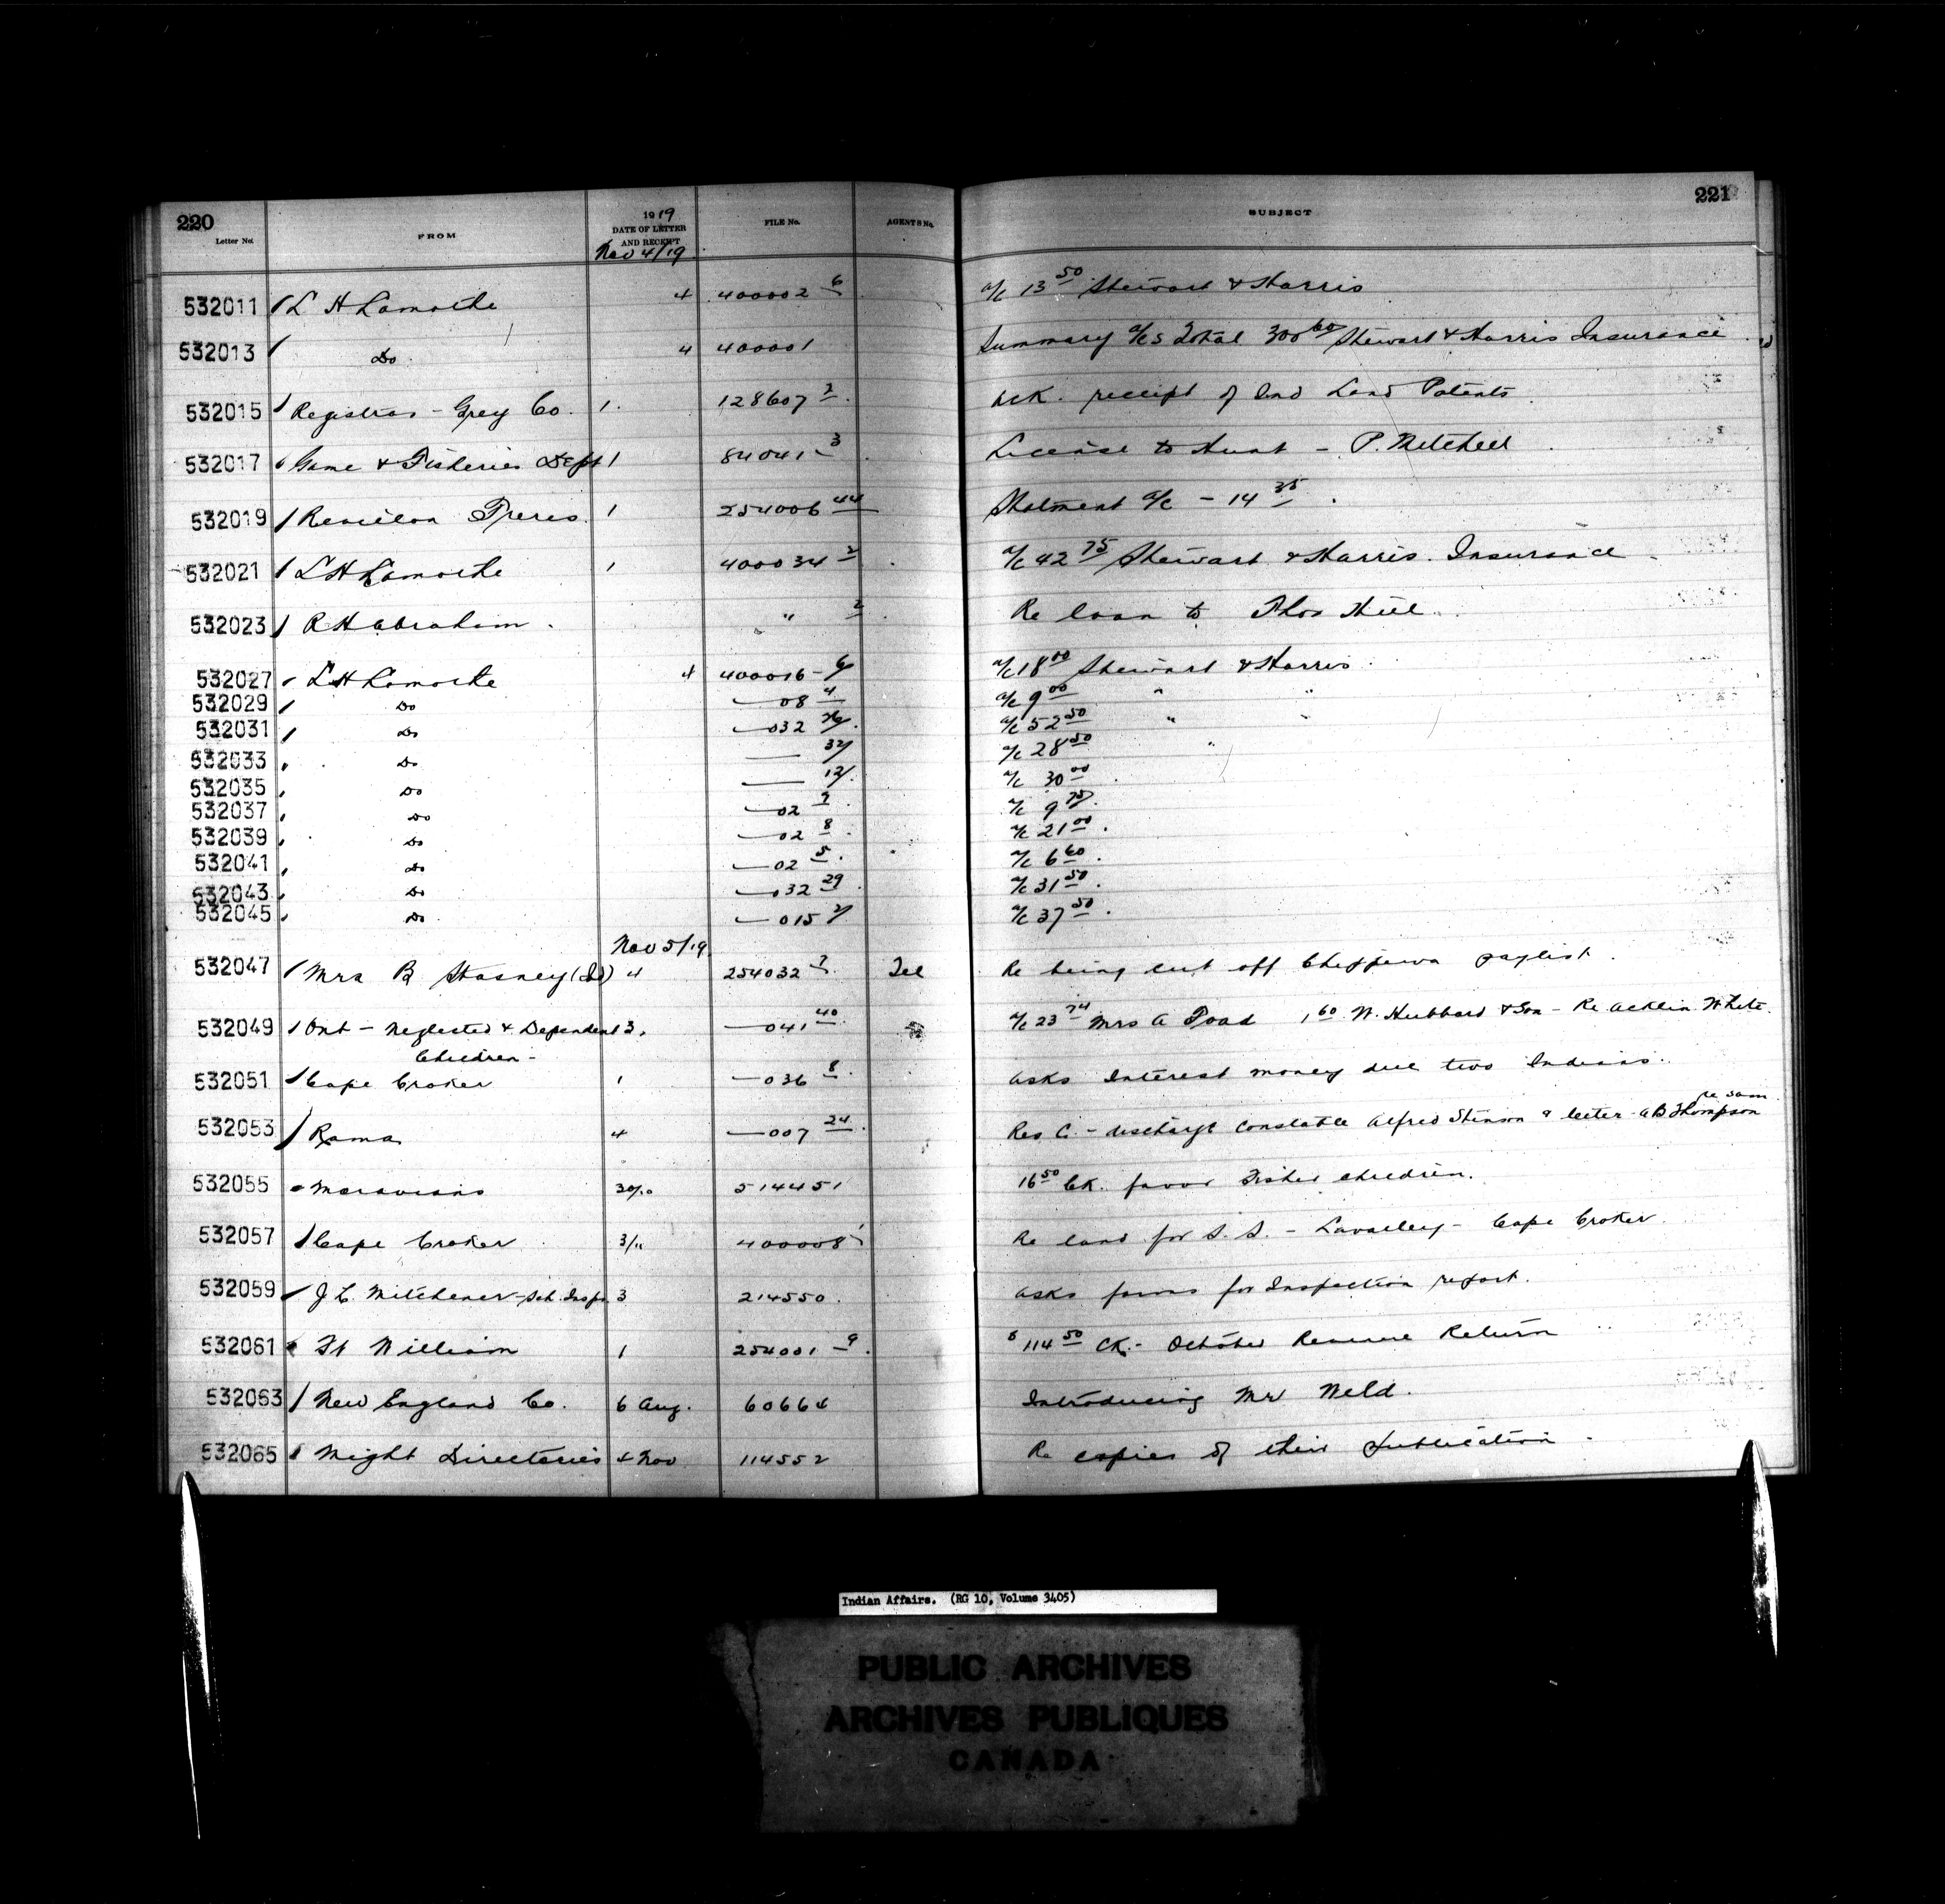 220
221
Letter No. FROM 1919 DATE OF LETTER AND RECEIPT FILE No. AGENTS No. SUBJECT
Nov 4/19
532011 L H Lamothe 4 400002 6 a/c 13 50 Stewart & Harris
532013 Do 4 400001 Summary a/cs Total 300 60 Stewart & Harris Insurance
532015 Registrar - Grey Co. 1. 128607 2 Ack. receipt of Ind Land Patents
532017 Game & Fisheries Dept 1 84041 3 License to Hunt - P. Mitchell
532019 Revillon Freres 1 254006 44 Statment a/c - 14 35
532021 L H Lamothe 1 400034 2 a/c 42 75 Stewart & Harris. Insurance
532023 R H Abraham. " 2 Re loan to Thos Hill
532027 L H Lamothe 4 400016-6/ a/c 18 00 Stewart & Harris
532029 Do —08 4 a/c 9 00 " "
532031 Do —032 26/ a/c 52 50 " "
532033 Do — 32/ a/c 28 50 "
532035 Do — 12/ a/c 30 00
532037 Do —02 9 a/c 9 75
532039 Do —02 8 a/c 21 00
532041 Do —02 5 a/c 6 60
532043 Do —032 29 a/c 31 50
532045 Do —015 2/ a/c 37 50
Nov 5/19
532047 Mrs B Stasney (Id) 4 254032 7 Tel Re being cut off Chippewa paylist.
532049 Ont - Neglected & Dependent 3, —041 40 a/c 23 74 Mrs A Toad 1 60 W. Hubbard & Son - Re Acklin White.
Children -
532051 Cape Croker 1 —036 8 asks Interest money due two Indians.
532053 Rama 4 —007 24 Res C. - discharge Constable Alfred Stinson & letter A B Thompson
re Sam
532055 Moravians 30/10 514451 16 50 Ck. favor Fisher children.
532057 Cape Croker 3/11 400008 1 Re land for S. S. - Lavalley - Cape Croker
532059 J C Mitchener - Sch. Insp. 3 214550 asks forms for Inspection report.
532061 Ft William 1 254001 - 9 $114 50 CK. - October Revenue Return
532063 New England Co. 6 Aug. 60664 Introducing Mr Weld.
532065 Might Directories 4 Nov 114552 Re copies of their publication -
Indian Affairs. (RG 10, Volume 3405)
PUBLIC ARCHIVES
ARCHIVES PUBLIQUES
CANADA